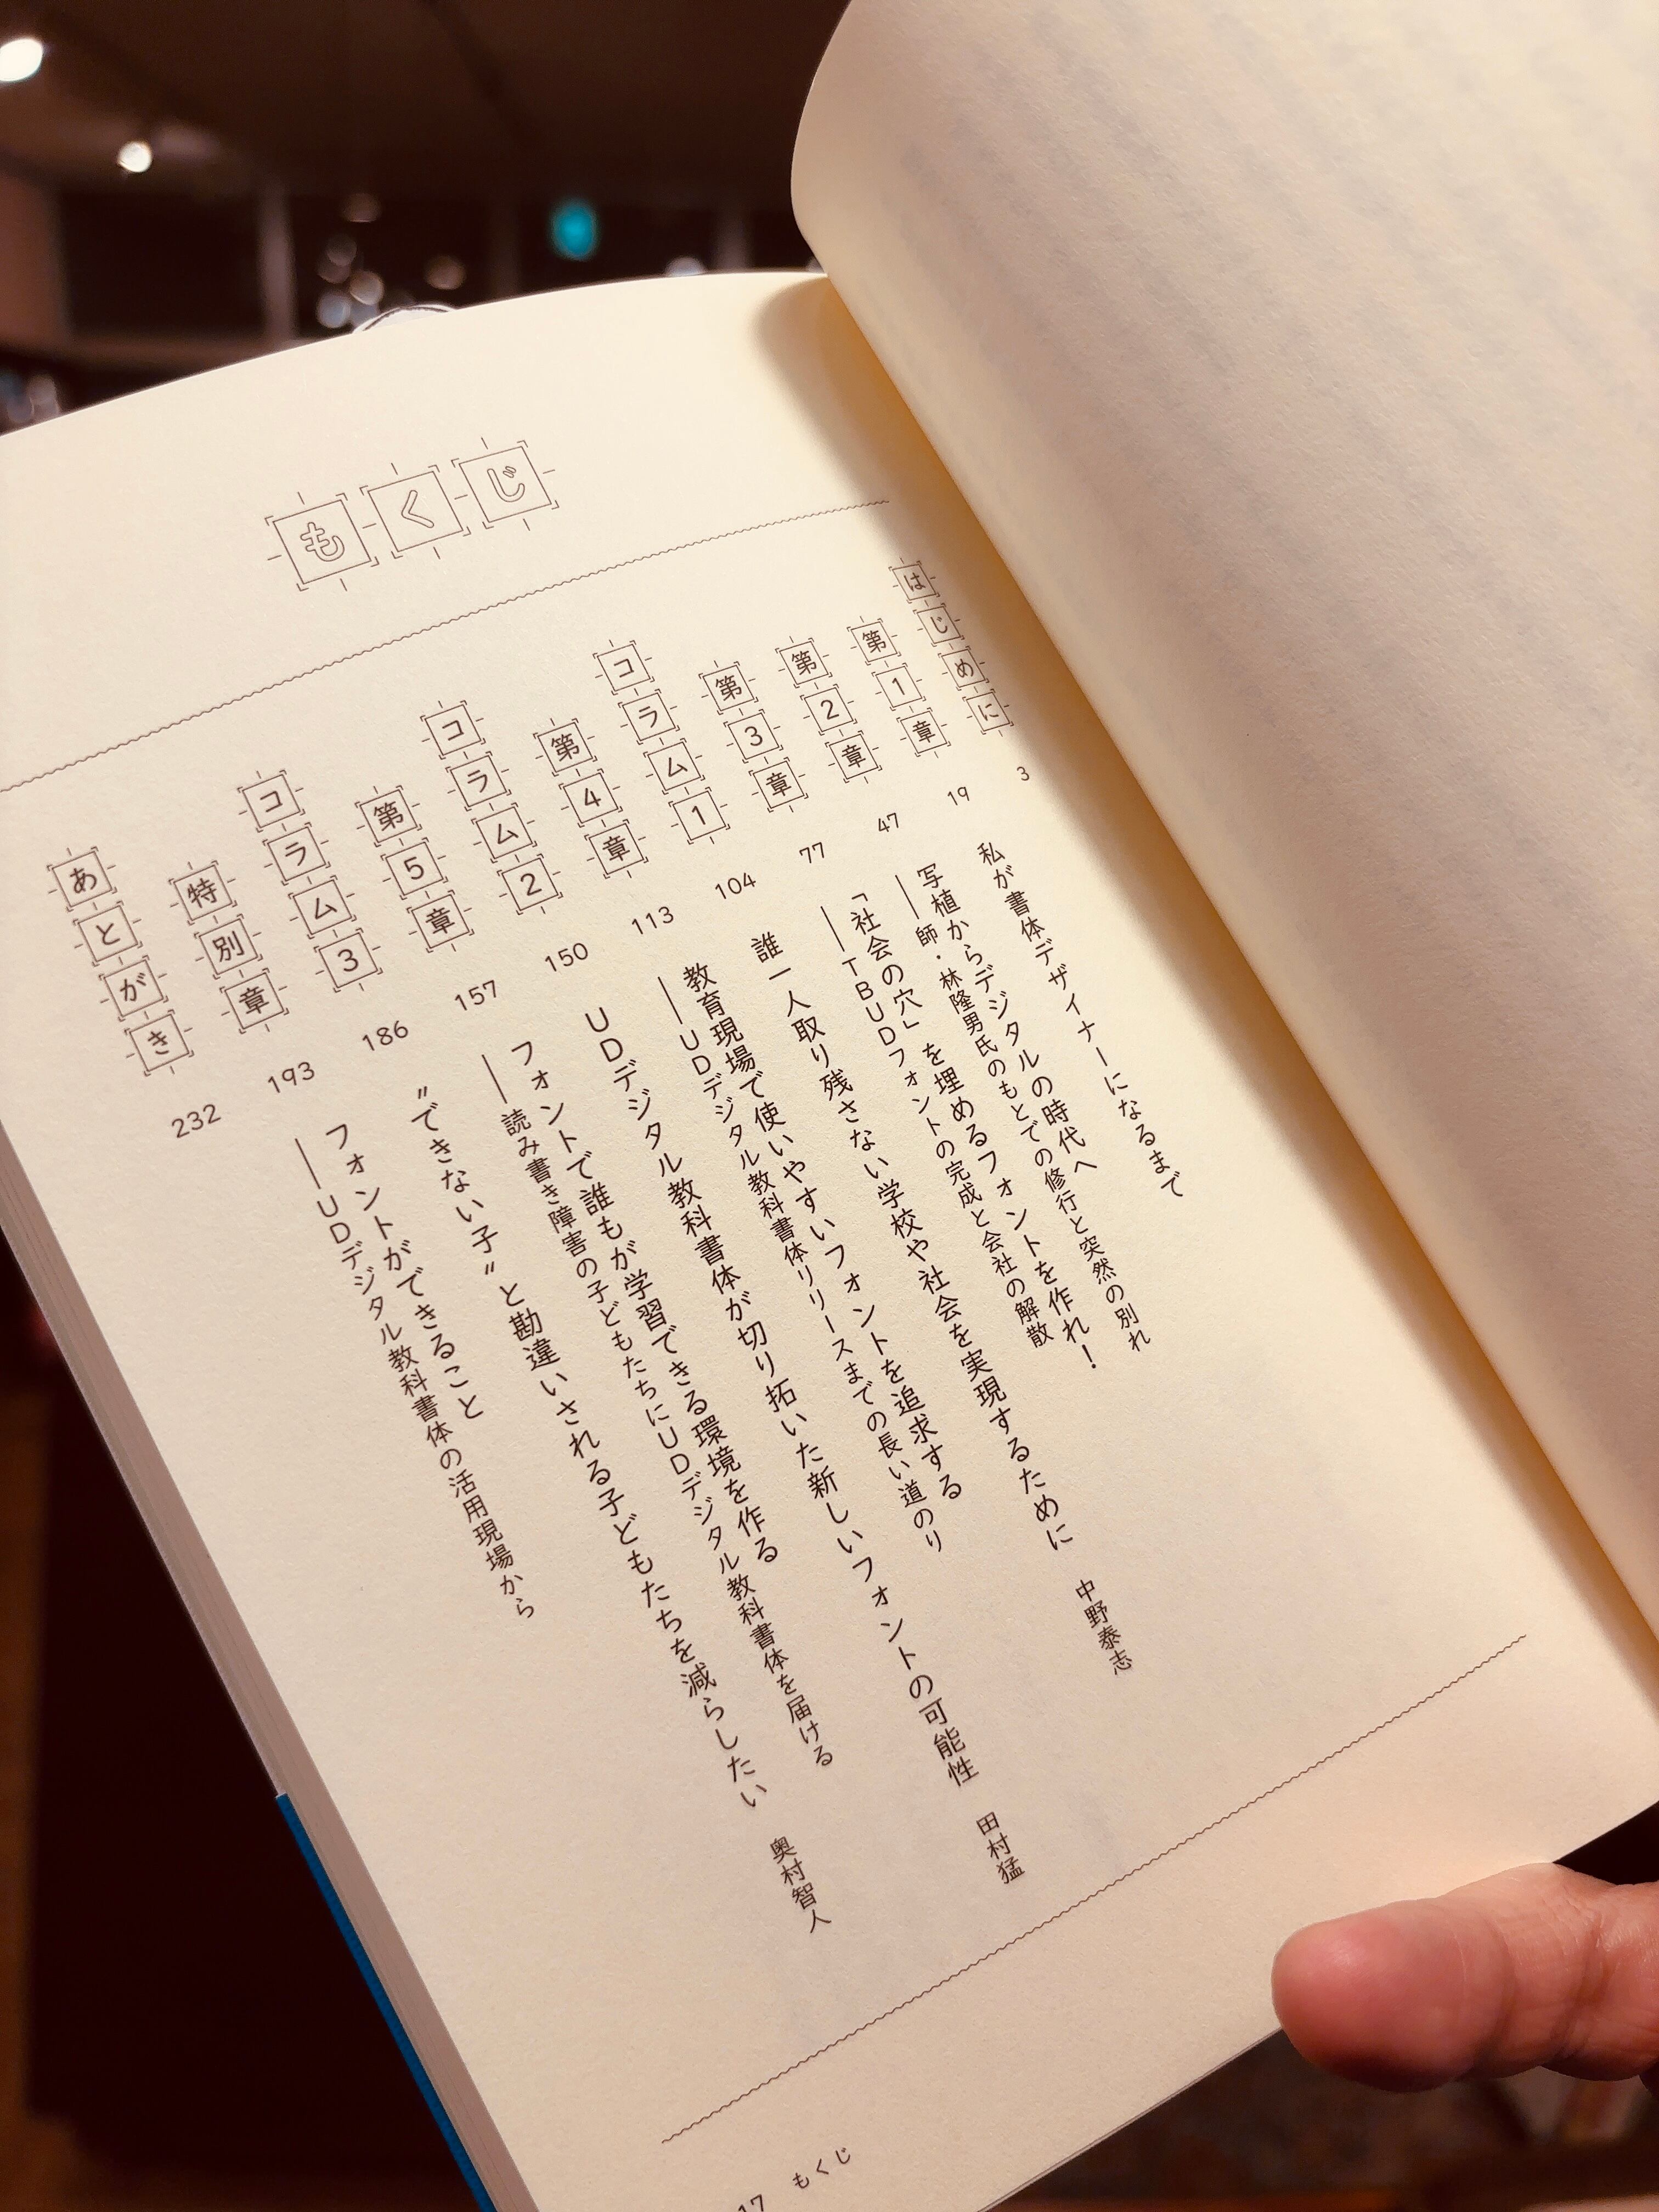 もくじ
はじめに 3
第1章 19 私が書体デザイナーになるまで
第2章 47 写植からデジタルの時代へ
――師・林隆男氏のもとでの修行と突然の別れ
第3章 77 「社会の穴」を埋めるフォントを作れ!
――TBUDフォントの完成と会社の解散
コラム1 104 誰一人取り残さない学校や社会を実現するために 中野泰志
第4章 113 教育現場で使いやすいフォントを追求する
――UDデジタル教科書体リリースまでの長い道のり
コラム2 150 UDデジタル教科書体が切り拓いた新しいフォントの可能性 田村猛
第5章 157 フォントで誰もが学習できる環境を作る
――読み書き障害の子どもたちにUDデジタル教科書体を届ける
コラム3 186 〝できない子〟と勘違いされる子どもたちを減らしたい 奥村智人
特別章 193 フォントができること
――UDデジタル教科書体の活用現場から
あとがき 232
17 もくじ